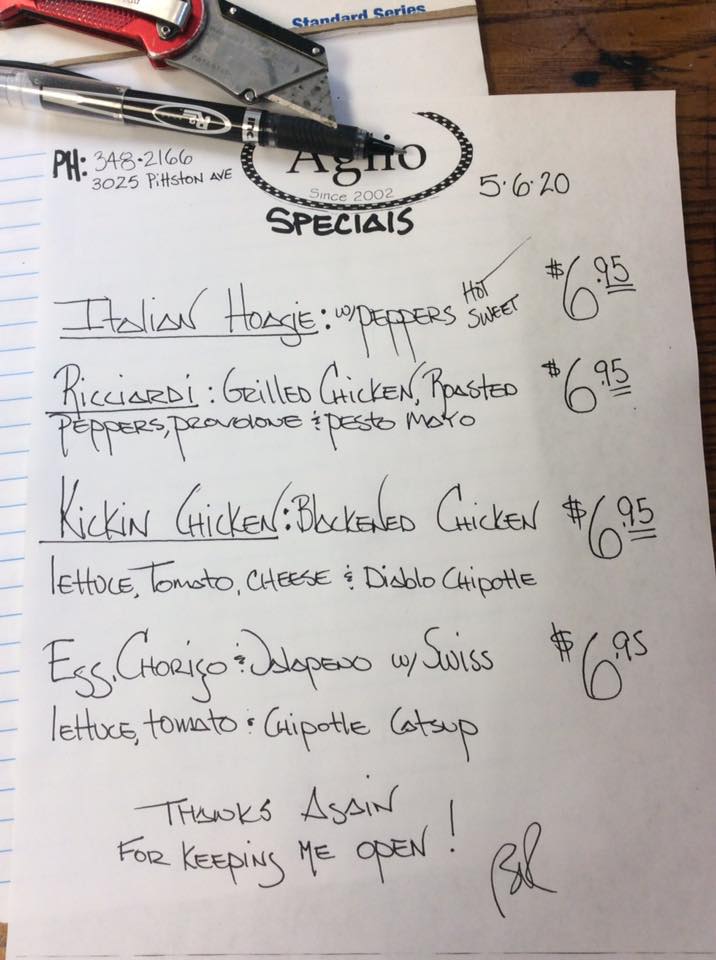 Standard Series
PH: 348·2166
3025 Pittston Ave
Aglio
Since 2002
5·6·20
SPECIALS
Italian Hoagie: w/peppers Hot Sweet $6.95
Ricciardi: Grilled Chicken, Roasted $6.95
peppers, provolone & pesto mayo
Kickin Chicken: Blackened Chicken $6.95
lettuce, Tomato, Cheese & Diablo Chipotle
Egg, Chorizo & Jalapeno w/ Swiss $6.95
lettuce, tomato & Chipotle Catsup
Thanks Again
for keeping me open!